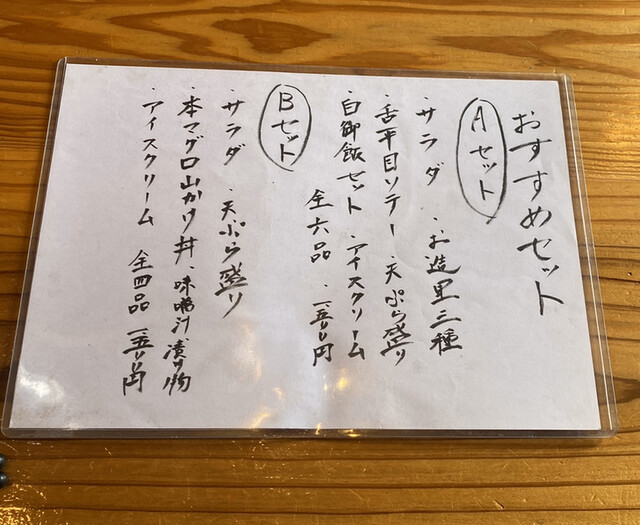 おすすめセット
Aセット
・サラダ ・お造里三種
・舌平目ソテー・天ぷら盛り
・白御飯セット ・アイスクリーム
全六品 一、五〇〇円
Bセット
・サラダ ・天ぷら盛り
・本マグロ山かけ丼・味噌汁・漬け物
・アイスクリーム 全四品 一、五〇〇円